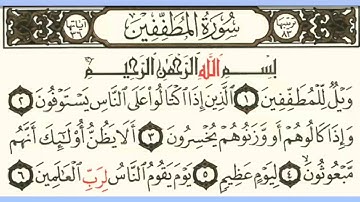 ترتيبها ٨٣ سُورَةُ المُطَفِّفِينَ آياتها ٣٦
بِسْمِ اللَّهِ الرَّحْمَٰنِ الرَّحِيمِ
وَيْلٌ لِّلْمُطَفِّفِينَ ١ ٱلَّذِينَ إِذَا ٱكْتَالُوا۟ عَلَى ٱلنَّاسِ يَسْتَوْفُونَ ٢
وَإِذَا كَالُوهُمْ أَو وَّزَنُوهُمْ يُخْسِرُونَ ٣ أَلَا يَظُنُّ أُو۟لَٰٓئِكَ أَنَّهُم
مَّبْعُوثُونَ ٤ لِيَوْمٍ عَظِيمٍ ٥ يَوْمَ يَقُومُ ٱلنَّاسُ لِرَبِّ ٱلْعَٰلَمِينَ ٦